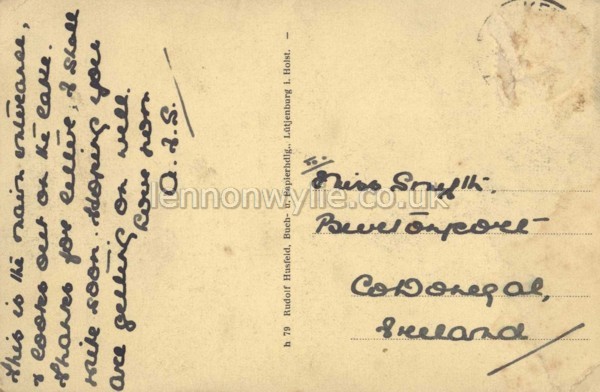 This is the main entrance,
& looks out on the lake.
Thanks for letter, & shall
write soon. Hoping you
are getting on well.
Love from
h 79 Rudolf Husfeld, Buch- u. Papierhdlg., Lütjenburg i. Holst. -
To:
Miss Smyth.
Burtonport
Co Donegal,
Ireland
lennonwylie.co.uk